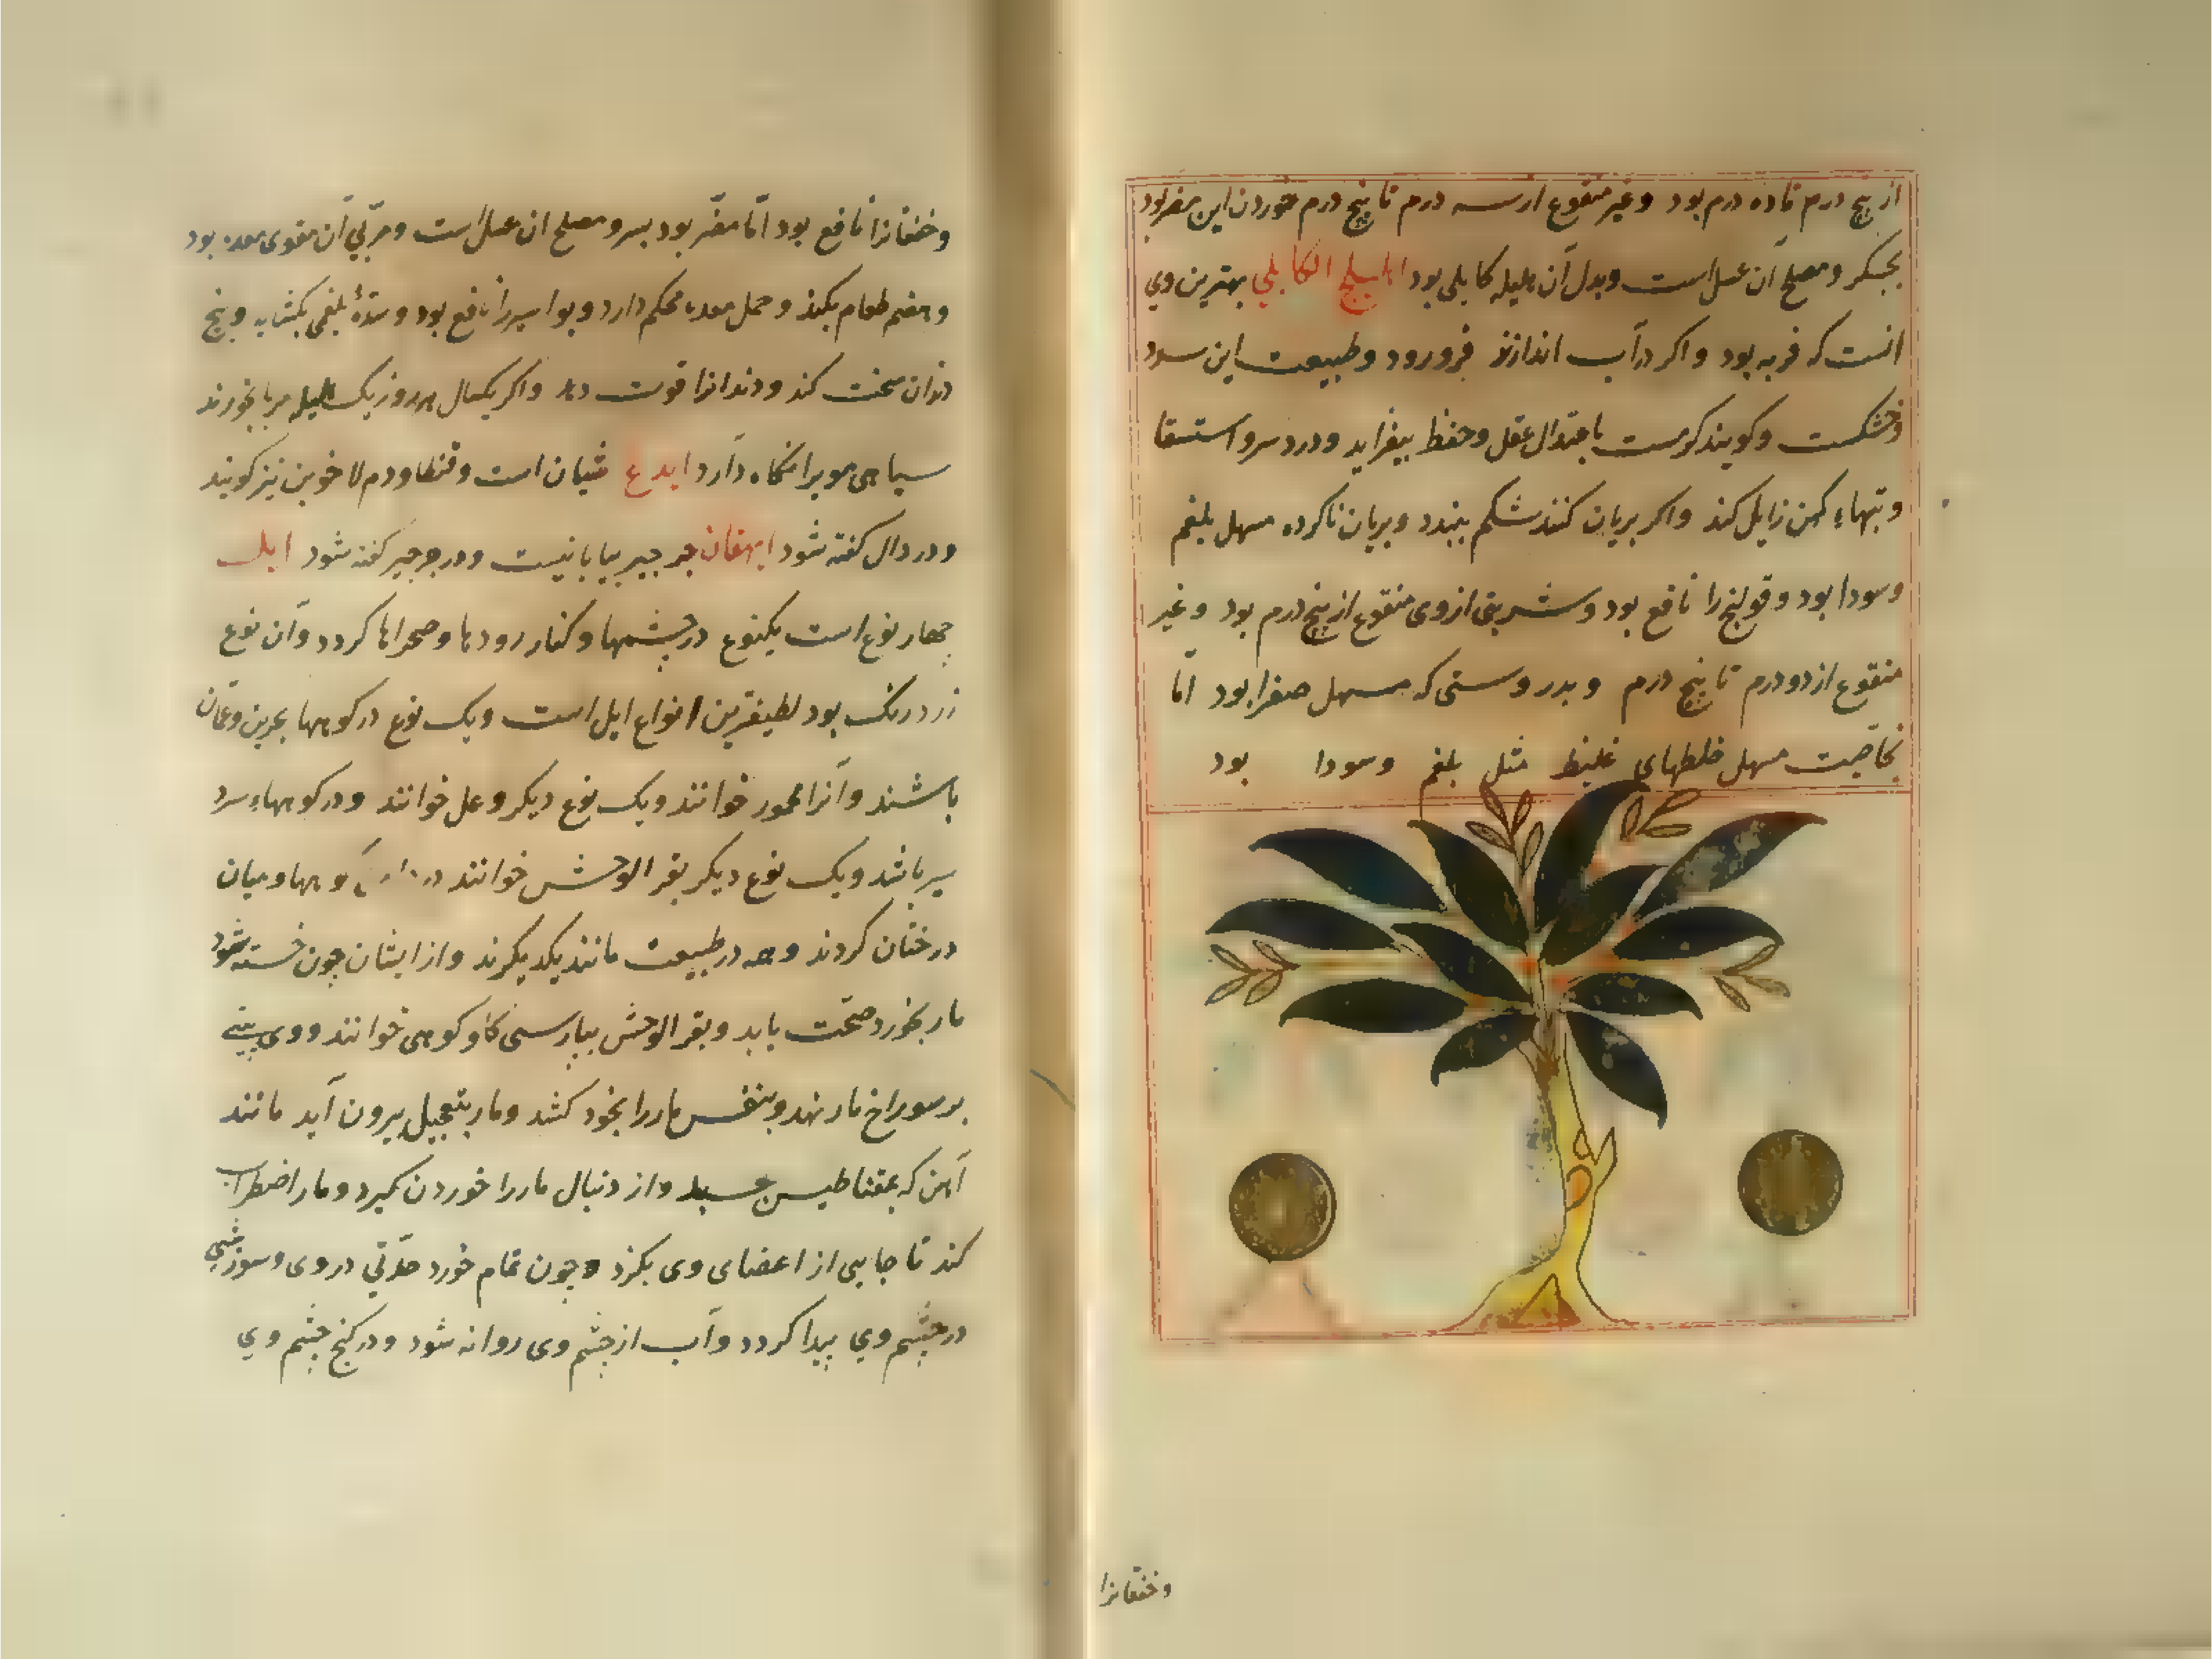 از پنج درم تا ده درم بود و غیر منقوع از سه درم تا پنج درم خوردن این مضر بود
بجگر و مصلح آن عسل است و بدل آن هلیله کابلی بود اهلیلج الکابلی بهترین وی
انست که فربه بود و اکر در آب اندازند فرو رود و طبیعت این سرد
و خشکست و کویند کرمست باعتدال عقل و حفظ بیفزاید و درد سر و استسقا
و تبهاء کهن زایل کند و اکر بریان کنند شکم ببندد و بریان ناکرده مسهل بلغم
و سودا بود و قولنج را نافع بود و شربتی از وی منقوع از پنج درم بود و غیر
منقوع از دو درم تا پنج درم و بدر وستی که مسهل صفرا بود امّا
بخاصّیت مسهل خلطهای غلیظ مثل بلغم و سودا بود
و خفقانرا
و خفقانرا نافع بود امّا مضّر بود بسر و مصلح ان عسل است و مربّی آن مقوی معده بود
و هضم طعام بکند و حمل معده محکم دارد و بواسیر را نافع بود و سدّهٔ بلغمی بکشاید و بیخ
دندان سخت کند و دندانرا قوت دهد و اکر یکسال هر روز یک هلیله مربا بخورند
سیاهی مویرا نکاه دارد ایدع شیان است و قنطا و دم لاخوین نیز کویند
و در دال کفته شود ایهقان جرجیر بیابانیست و در جرجیر کفته شود ایل
چهار نوع است یکنوع در چشمها و کنار رودها و صحراها کردد و آن نوع
زرد رنک بود لطیفترین انواع ایل است و یک نوع در کوهها بحرین و عمّان
باشند و آنرا محور خوانند و یک نوع دیکر وعل خوانند و در کوهاء سرد
سیر باشد و یک نوع دیکر بقر الوحش خوانند در کوهها و میان
درختان کردند و همه در طبیعت مانند یکدیکرند و از ایشان چون خسته شود
مار بخورد صحّت یابد و بقر الوحش بپارسی کاو کوهی خوانند و وی بینی
بر سوراخ مار نهد و بنفس مار را بخود کشد و مار بتعجیل بیرون آید مانند
آهن که بمقناطیس و از دنبال مار را خوردن کیرد و مار اضطراب
کند تا جایی از اعضای وی بکزد و چون تمام خورد حدّتی در وی و سوزشی
در چشم وی پیدا کردد و آب از چشم وی روانه شود و در کنج چشم وی